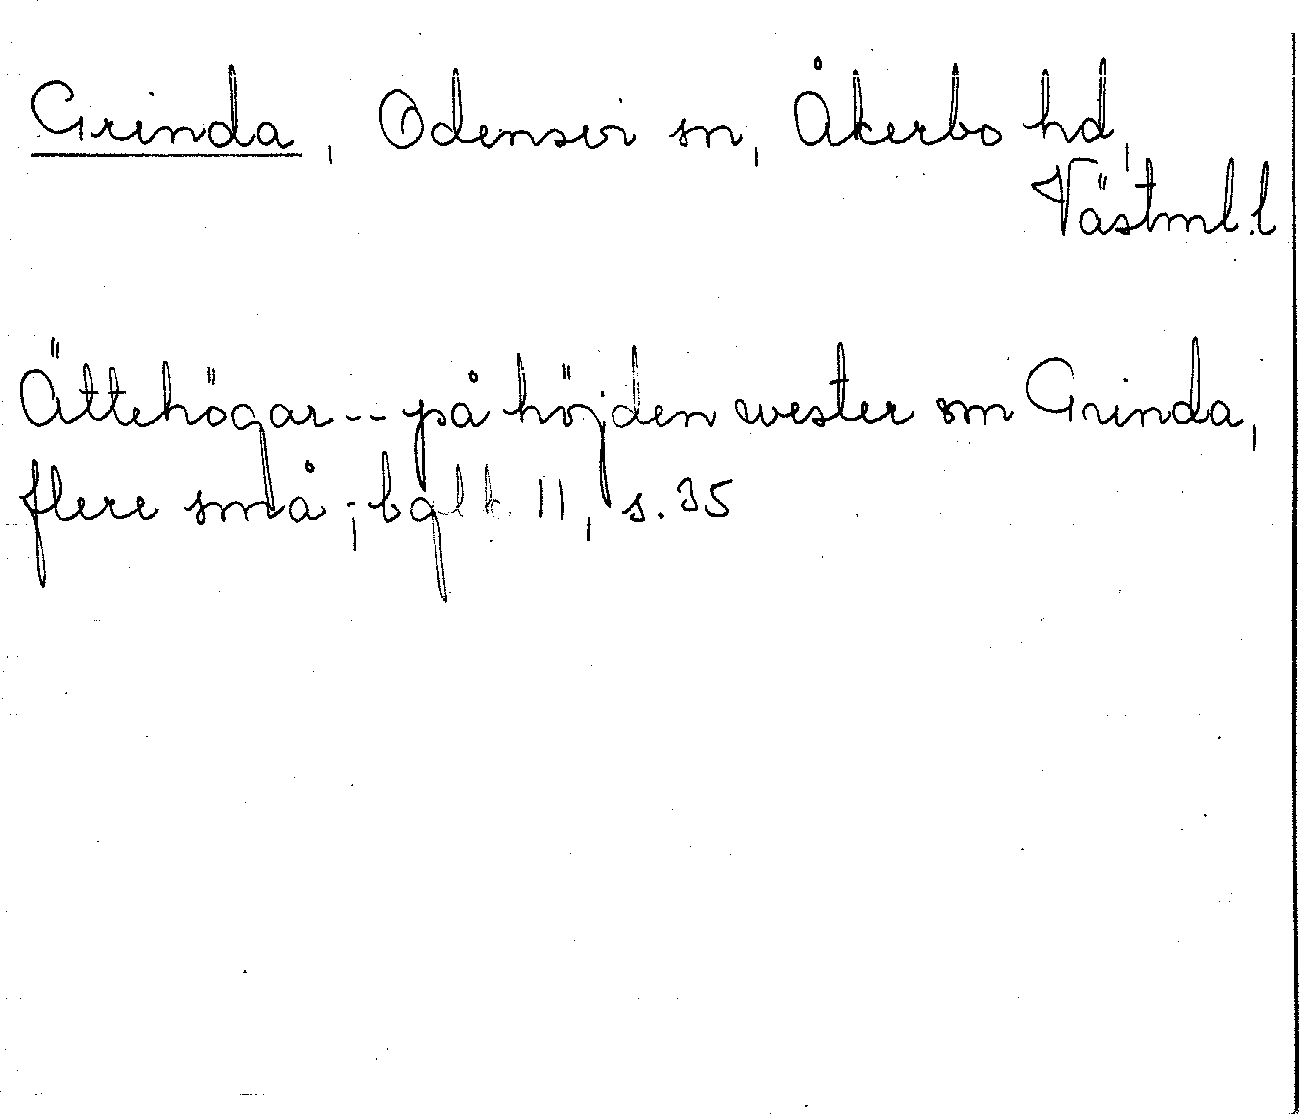 Grinda, Odensvi sn, Åkerbo hd,
Västml. l
Ättehögar -- på höjden wester om Grinda,
flere små; 11, s. 35